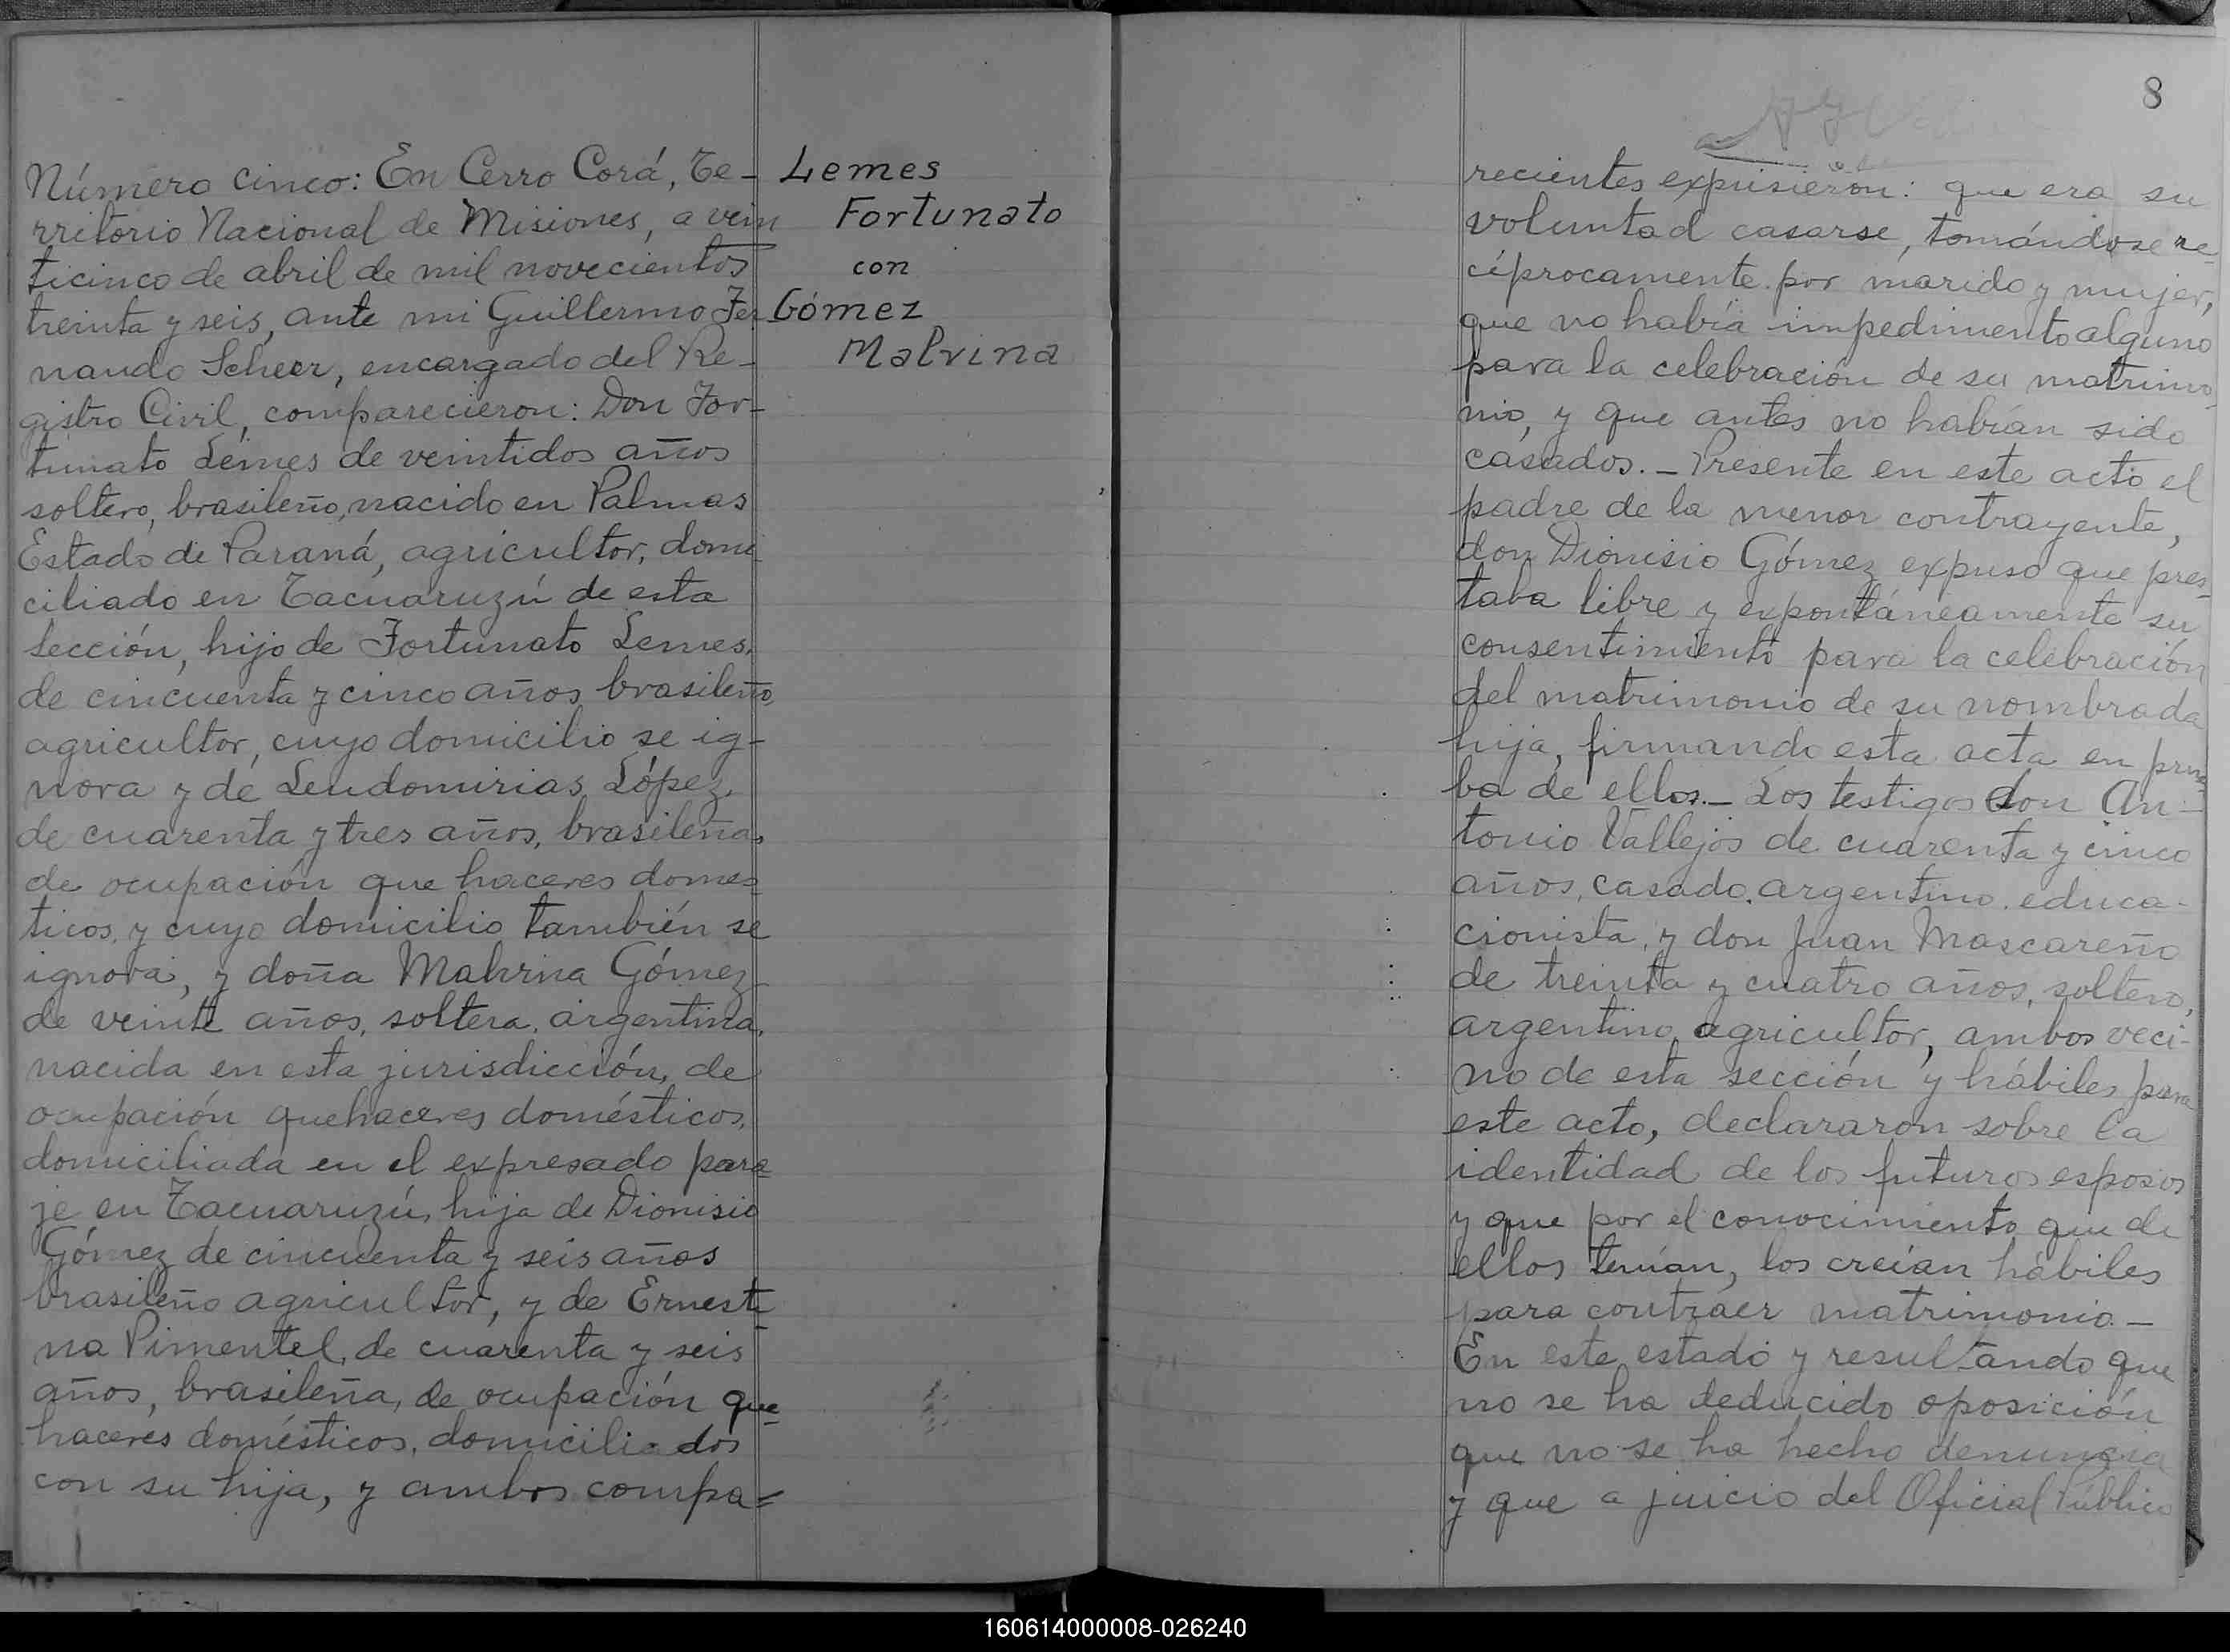 Número cinco: En Cerro Corá, Te-
rritorio Nacional de Misiones, a vein
ticinco de abril de mil novecientos
treinta y seis, ante mi Guillermo Fer-
nando Scheer, encargado del Re-
gistro Civil, comparecieron: Don For-
tunato Lemes de veintidos años
soltero, brasileño, nacido en Palmas
Estado de Paraná, agricultor, domi
ciliado en Tacuaruzú de esta
sección, hijo de Fortunato Lemes,
de cincuenta y cinco años, brasileño,
agricultor, cuyo domicilio se ig-
nora y de López,
de cuarenta y tres años, brasileña,
de ocupación que haceres domes-
ticos, y cuyo domicilio también se
ignora, y doña Malvina Gómez
de veinte años, soltera, argentina,
nacida en esta jurisdicción, de
ocupación quehaceres domésticos,
domiciliada en el expresado para-
je en Tacuaruzú, hija de Dionisio
Gómez de cincuenta y seis años
brasileño agricultor, y de Ernesti-
na Pimentel, de cuarenta y seis
años, brasileña, de ocupación que-
haceres domésticos, domiciliados
con su hija, y ambos compa=
Lemes
Fortunato
con
Gómez
Malvina
8
recientes expusieron: que era su
voluntad casarse, tomándose re-
cíprocamente por marido y mujer,
que no había impedimento alguno
para la celebración de su matrimo-
nio, y que antes no habían sido
casados.- Presente en este acto el
padre de la menor contrayente,
don Dionisio Gómez expuso que pres-
taba libre y expontáneamente su
consentimiento para la celebración
del matrimonio de su nombrada
hija, firmando esta acta en prue-
ba de ellos.- Los testigos don An-
tonio Vallejos de cuarenta y cinco
años, casado, argentino, educa-
cionista, y don Juan Mascareño
de treinta y cuatro años, soltero,
argentino, agricultor, ambos veci-
no de esta sección y hábiles para
este acto, declararon sobre la
identidad de los futuros esposos
y que por el conocimiento que de
ellos tenían, los creían hábiles
para contraer matrimonio.-
En este estado y resultando que
no se ha deducido oposición
que no se ha hecho denuncia
y que a juicio del Oficial Público
160614000008-026240